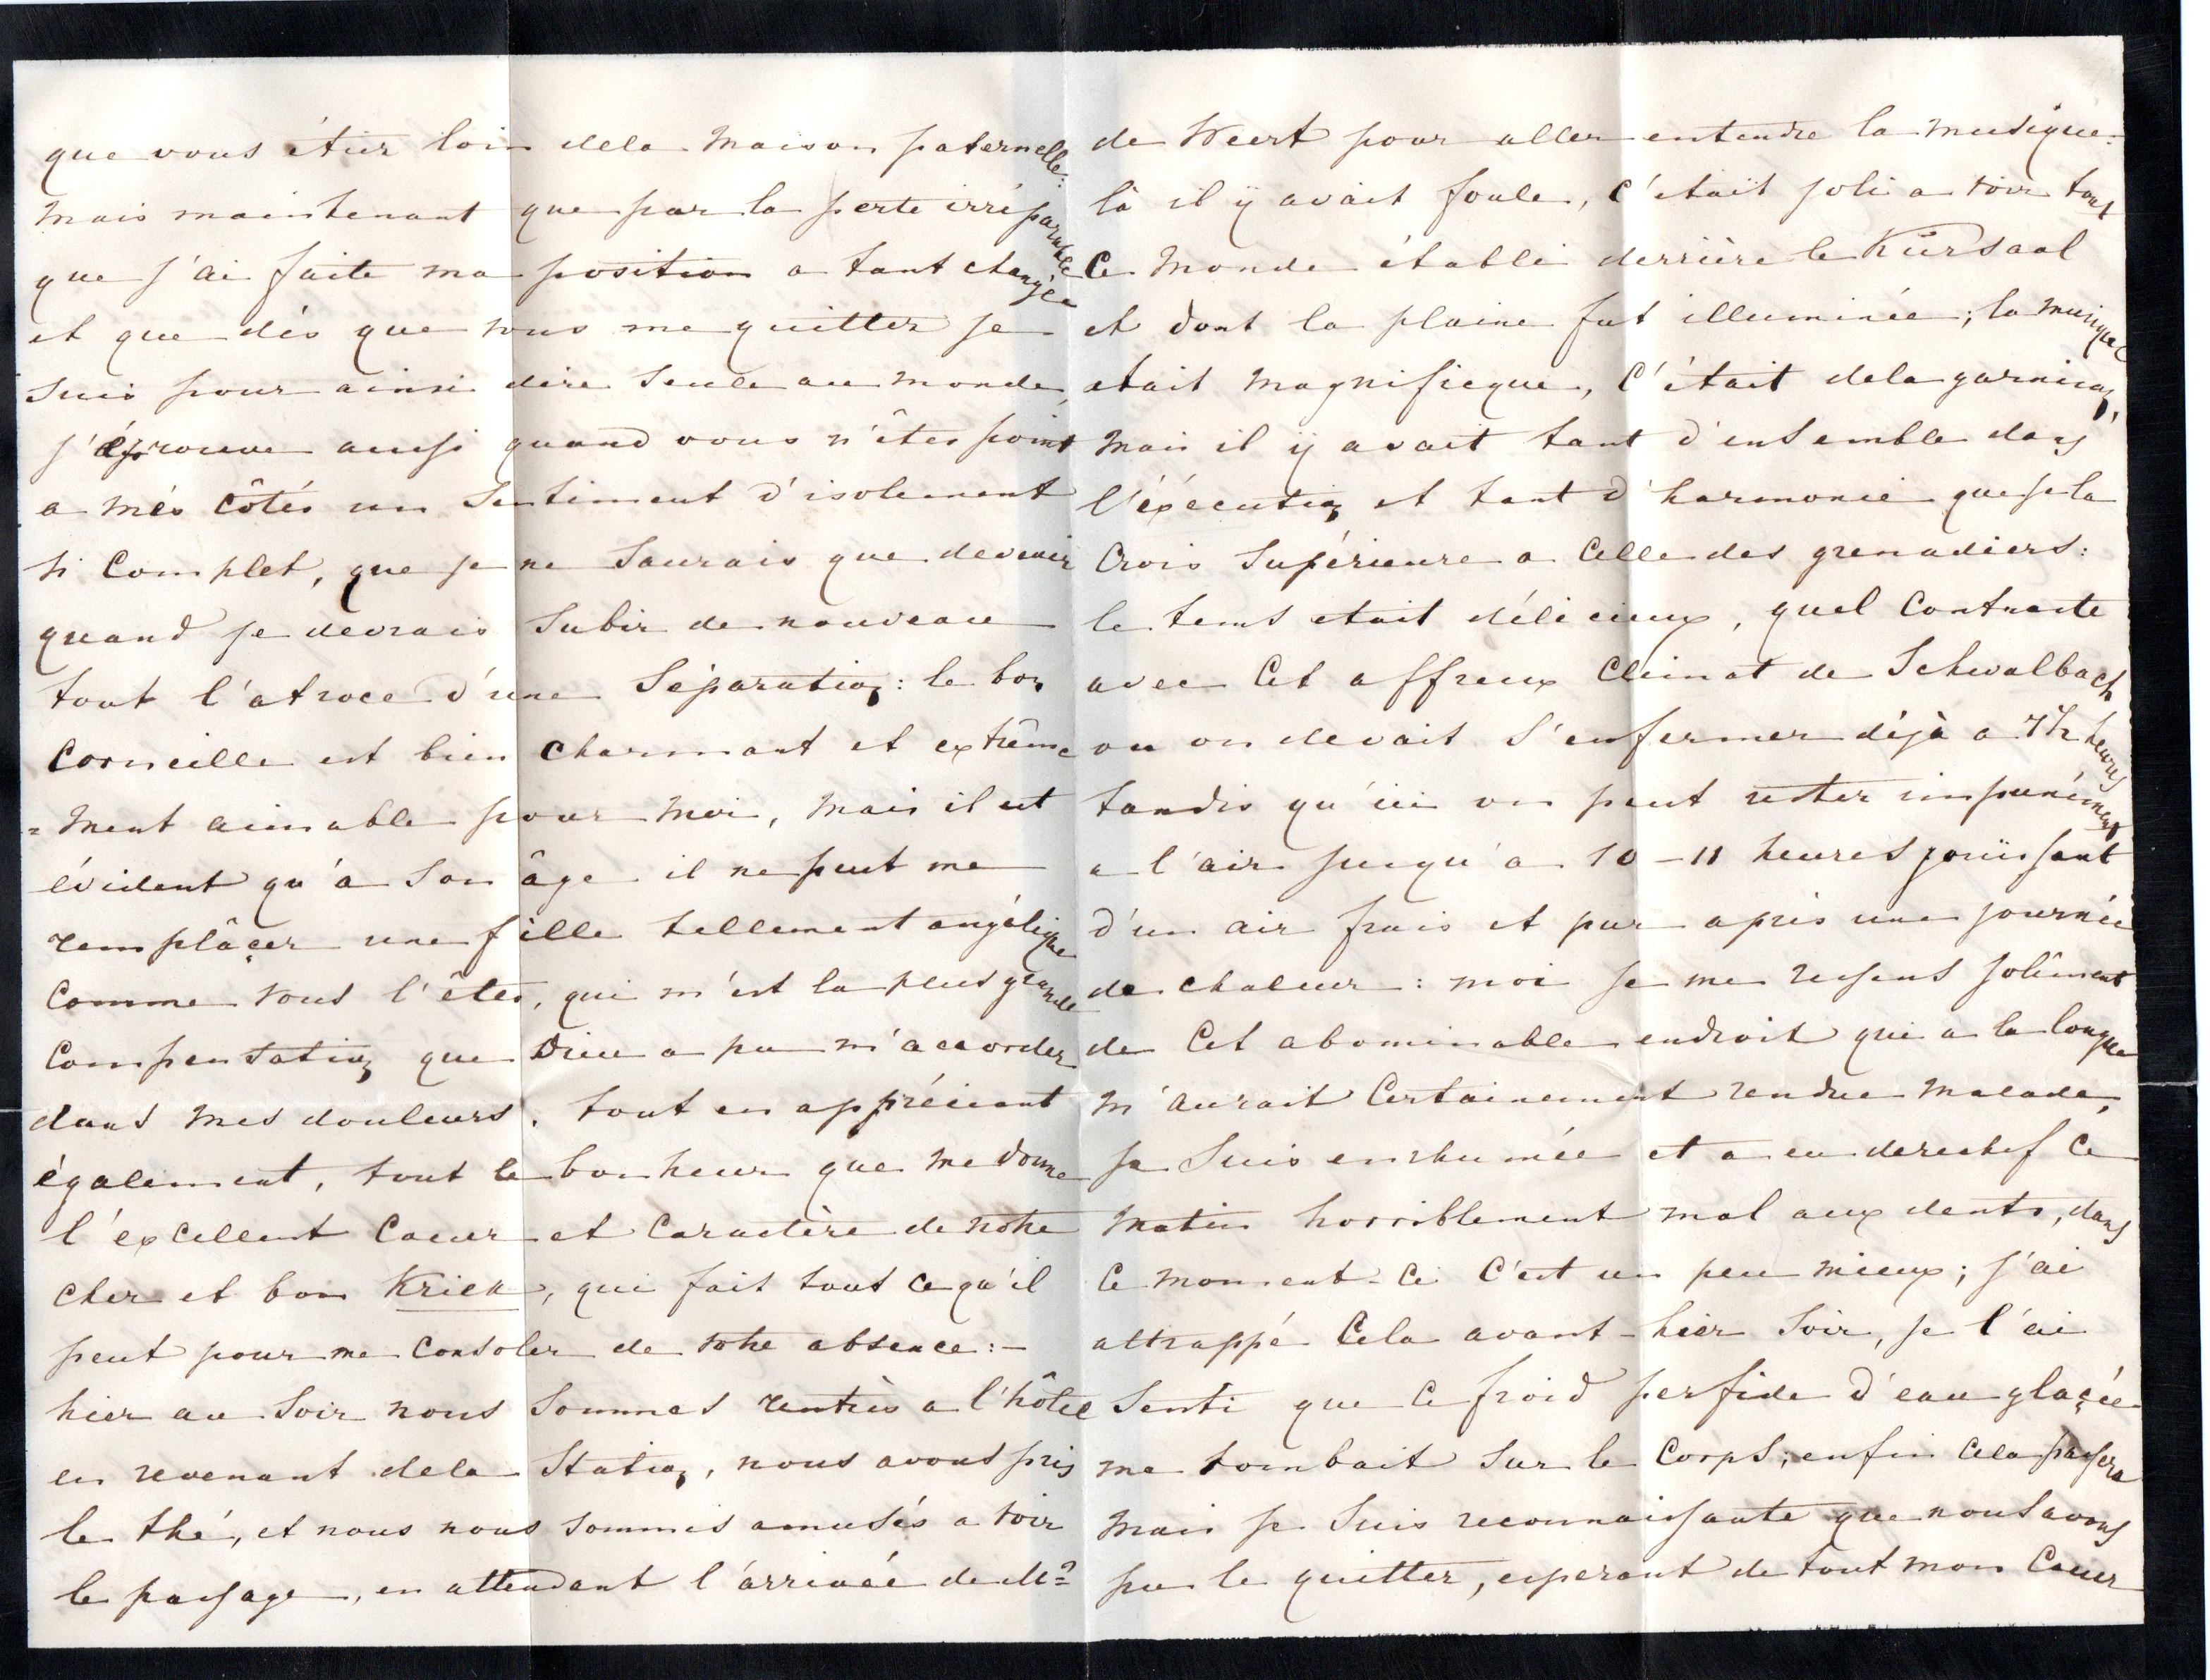 que vous étiez loin dela maison paternelle:
mais maintenant que par la perte irréparable
que j'ai faite ma position a tant changée
et que dès que vous me quittez je
suis pour ainsi dire seule au monde,
j'éprouve aussi quand vous n'êtes point
a més côtés un sentiment d'isolement
si complet, que je ne saurais que devenir
quand je devrais subir de nouveau
tout l'atroce d'une séparation: le bon
Corneille est bien charmant et extrême
=ment aimable pour moi, mais il est
évident qu'à son âge il ne peut me
remplâçer une fille tellement angélique
comme vous l'êtes, qui m'est la plus grande
compensation que Dieu a pu m'accorder
dans mes douleurs. tout en appréciant
également, tout le bonheur que me donne
l'éxcellent coeur et caractère de notre
cher et bon Kriek, qui fait tout ce qu'il
peut pour me consoler de votre absence:-
hier au soir nous sommes rentrès a l'hôtel
en revenant dela station, nous avons pris
le thé, et nous nous sommes amusés a voir
le passage, en attendant l'arrivée de Mr
de Weert pour aller entendre la musique:
là il ÿ avait foule, c'etait joli a voir tout
ce monde établi derrière le Kursaal
et dont la plaine fut illuminée; la musique
etait magnifique, c'était dela garnison,
mais il ÿ avait tant d'ensemble dans
l'éxécution et tant d'harmonie que je la
crois supérieure a celle des grenadiers:
le tems etait délicieux, quel contraste
avec cet affreux climat de Schwalbach
ou on devait s'enfermer déjà a 7½ heures
tandis qu'ici on peut rester impunément
a l'air jusqu'a 10-11 heures jouissant
d'un air frais et pur après une journée
de chaleur: moi je me resens joliment
de cet abominable endroit qui a la longue
m'aurait certainement rendue malade,
je suis enrhumée et a eu derechef ce
matin horriblement mal aux dents, dans
ce moment-ci c'est un peu mieux; j'ai
attrappé cela avant-hier soir, je l'ai
senti que ce froid perfide d'eau glaçée
me tombait sur le corps; enfin cela passera
mais je suis reconnaissante que nous avons
pu le quitter, esperant de tout mon coeur